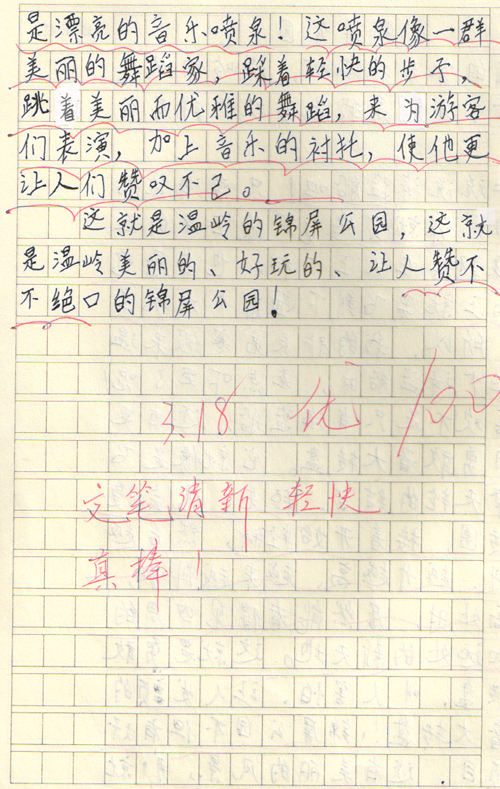 是漂亮的音乐喷泉！这喷泉像一群
美丽的舞蹈家，踩着轻快的步子，
跳着美丽而优雅的舞蹈，来为游客
们表演，加上音乐的衬托，使他更
让人们赞叹不已。
这就是温岭的锦屏公园，这就
是温岭美丽的、好玩的、让人赞不
不绝口的锦屏公园！
3.18 优 100
文笔清新 轻快
真棒！